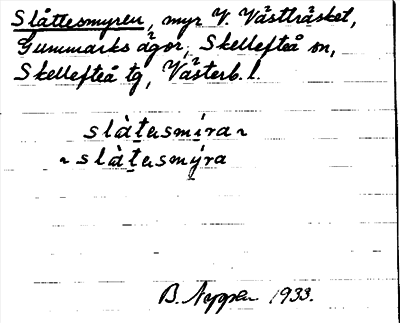 Slåttesmyren, myr V. Västträsket,
Gummarks ägor, Skellefteå sn,
Skellefteå tg, Västerb. l.
slàtesmira ~
~ slàtesmýra
B. 1933.